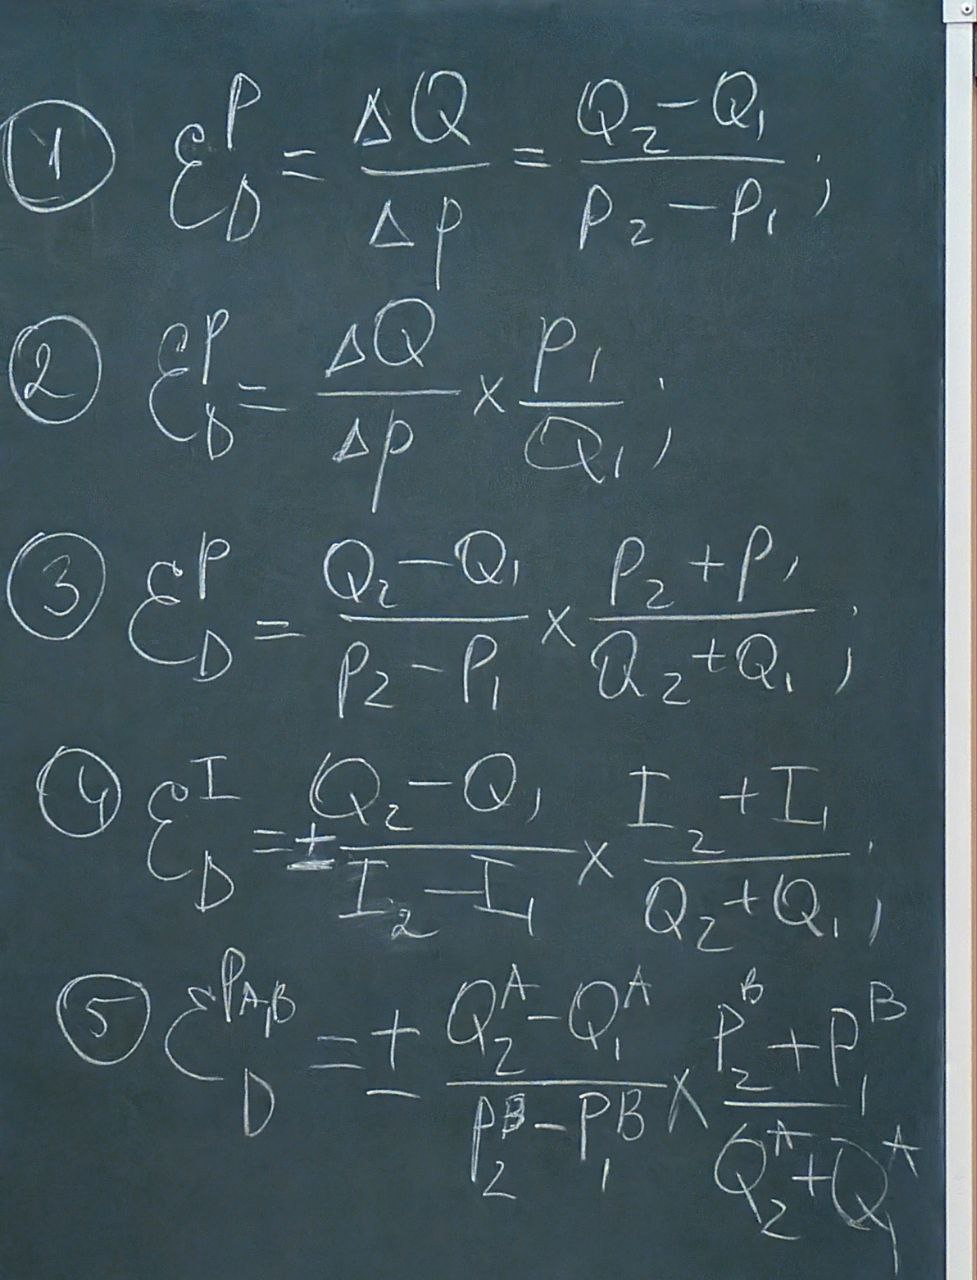 ① ε^P_D = ΔQ/Δp = (Q₂ − Q₁)/(P₂ − P₁) ;
② ε^P_D = ΔQ/Δp × P₁/Q₁ ;
③ ε^P_D = (Q₂ − Q₁)/(P₂ − P₁) × (P₂ + P₁)/(Q₂ + Q₁) ;
④ ε^I_D = ± (Q₂ − Q₁)/(I₂ − I₁) × (I₂ + I₁)/(Q₂ + Q₁) ;
⑤ ε^{P_{A,B}}_D = ± (Q₂^A − Q₁^A)/(P₂^B − P₁^B) × (P₂^B + P₁^B)/(Q₂^A + Q₁^A)